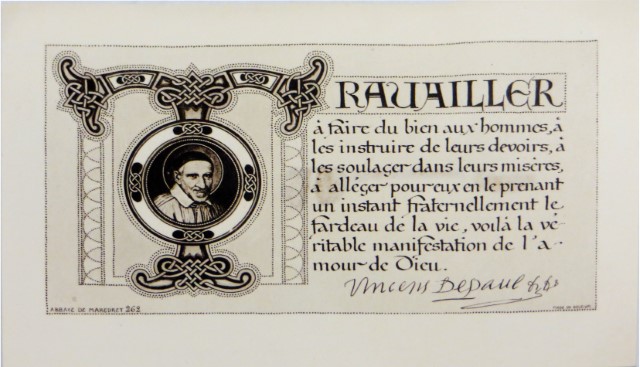 TRAVAILLER
à faire du bien aux hommes, à
les instruire de leurs devoirs, à
les soulager dans leurs misères,
à alléger pour eux en le prenant
un instant fraternellement le
fardeau de la vie, voilà la vé-
ritable manifestation de l'a-
mour de Dieu.
Vincens Depaul
ABBAYE DE MAREDRET 262